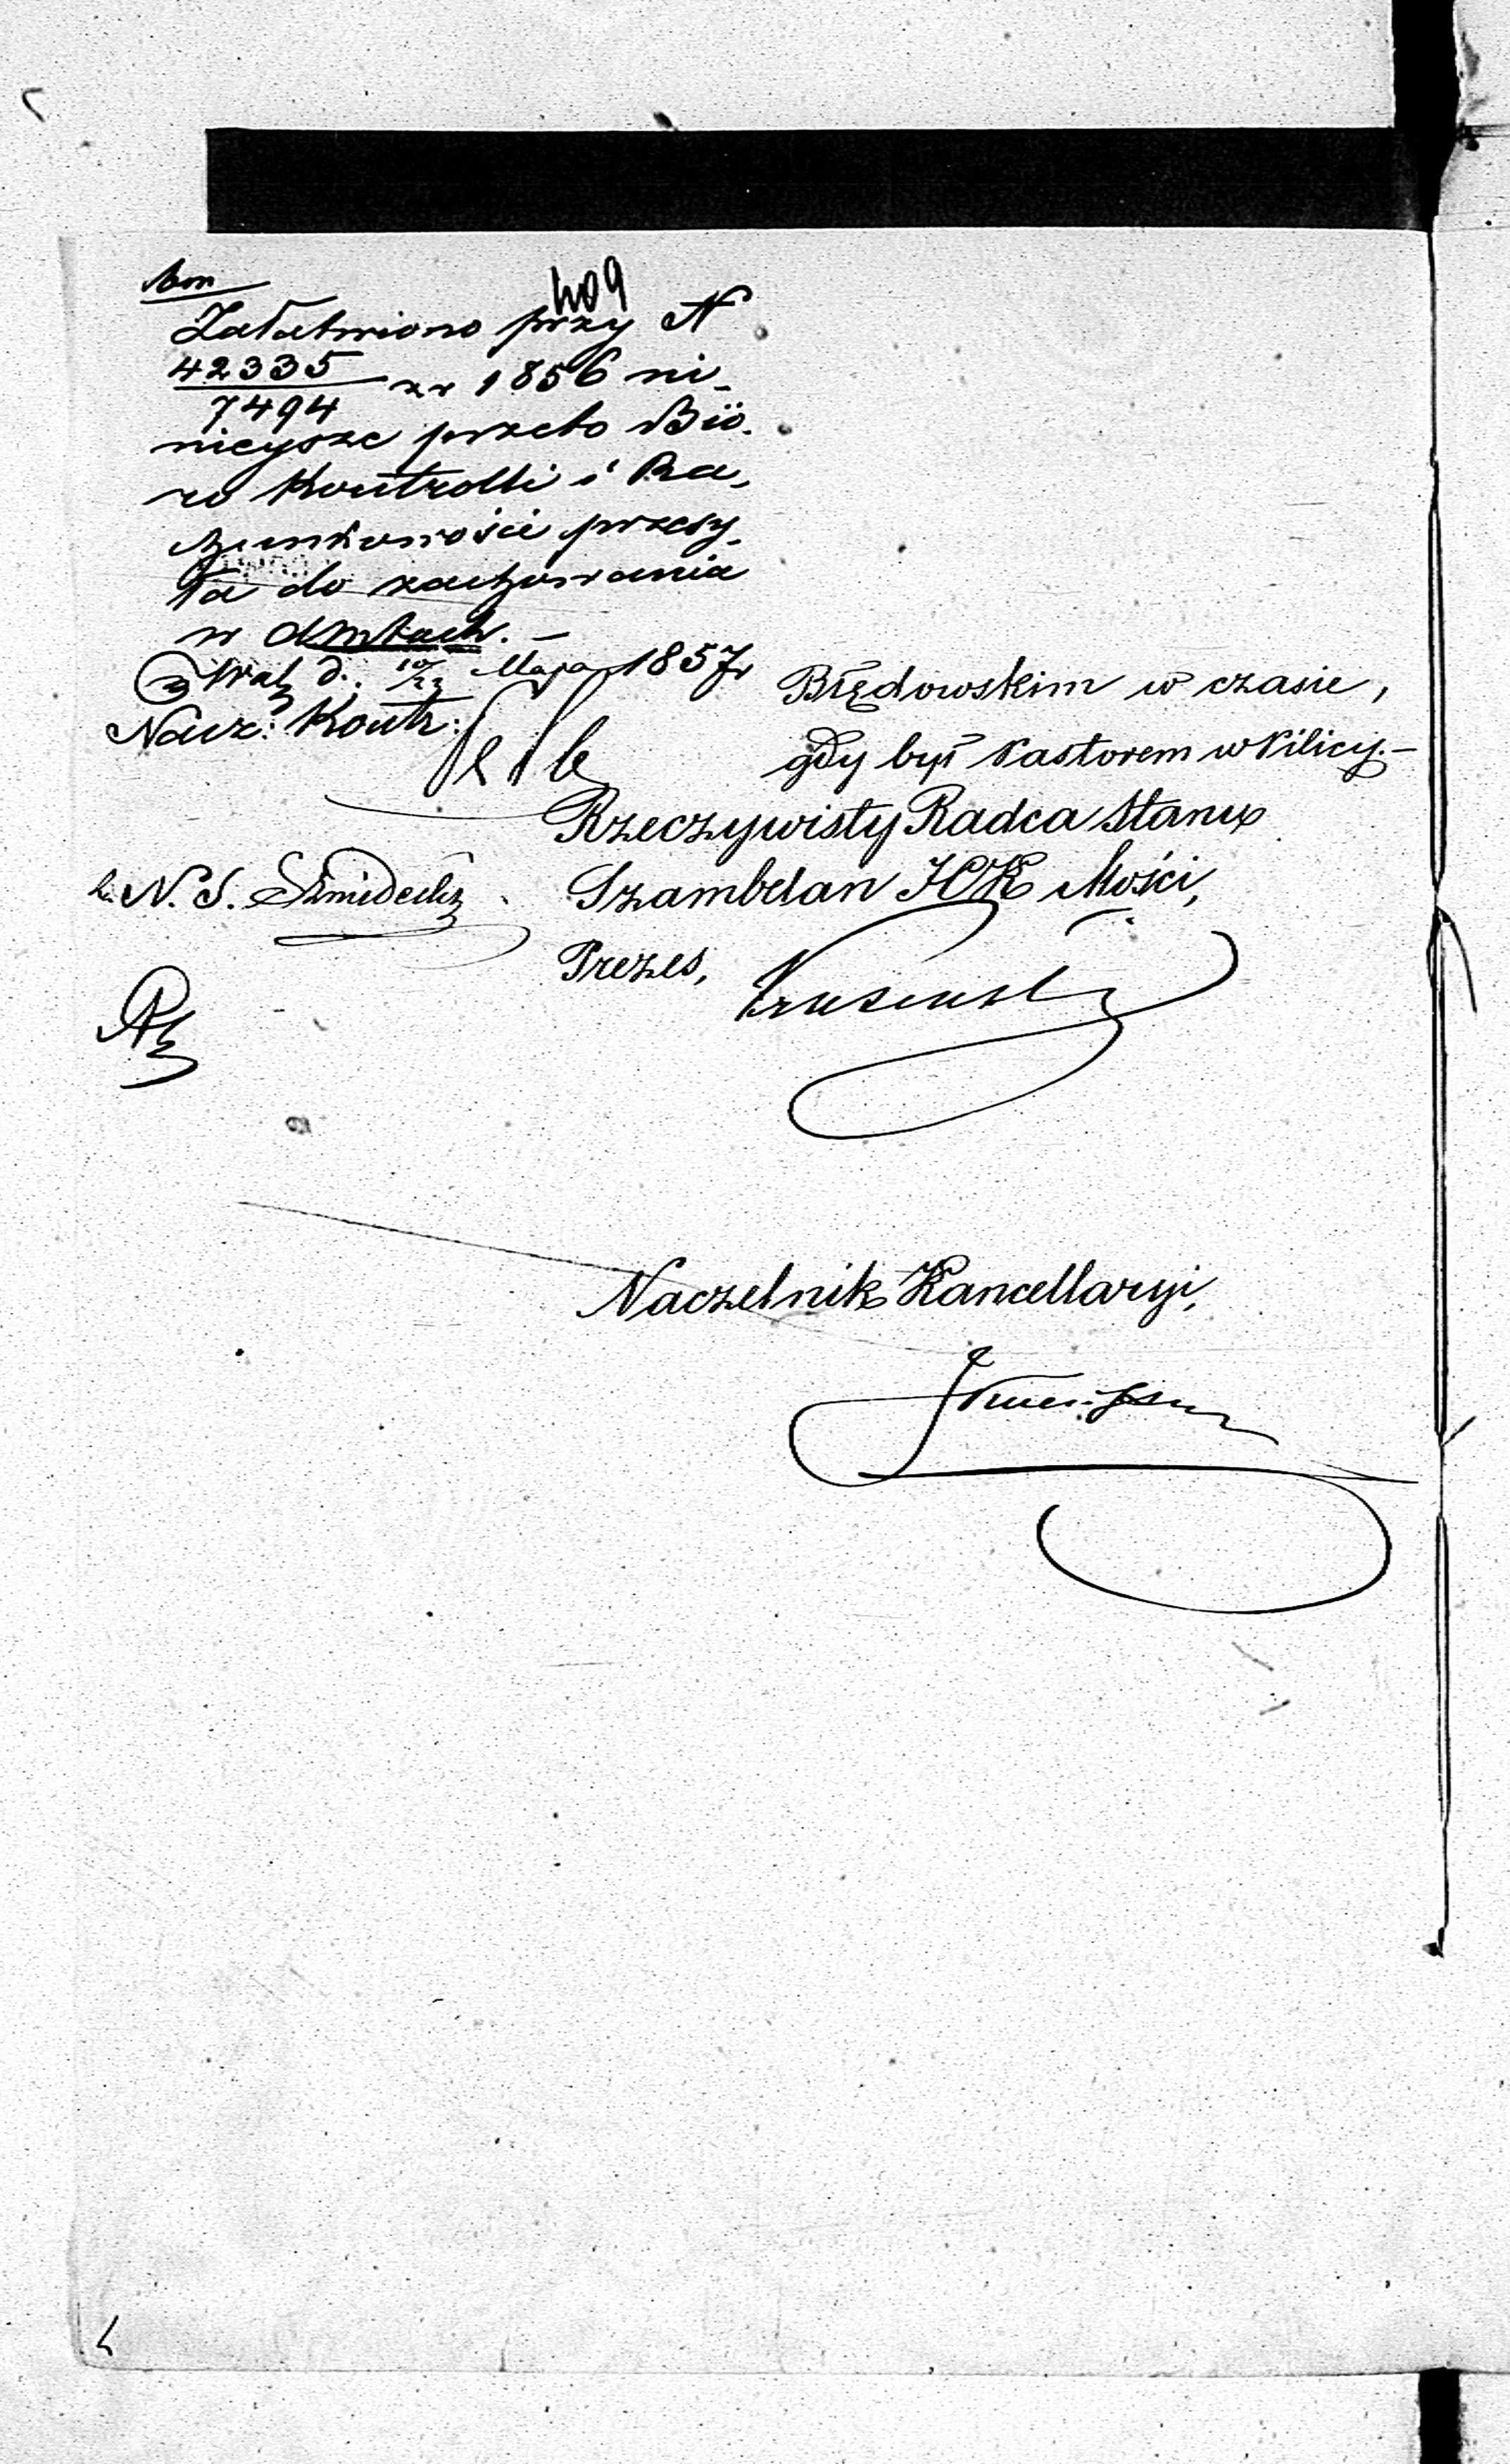 409
Załatwiono przy N
42335
7494 zr 1856 ni-
nieysze przeto Biö-
ro Kontrolli i Ra-
chunkowości przesy-
ła do zachowania
w aktach. –
d. 10/22 Maja 1857r
Nacz: Kontr:
Błędowskim w czasie,
gdy był Pastorem w Pilicy.–
Rzeczywisty Radca Stanu
Szambelan JCK Mości,
N. S.
Prezes,
Naczelnik Kancellaryi,